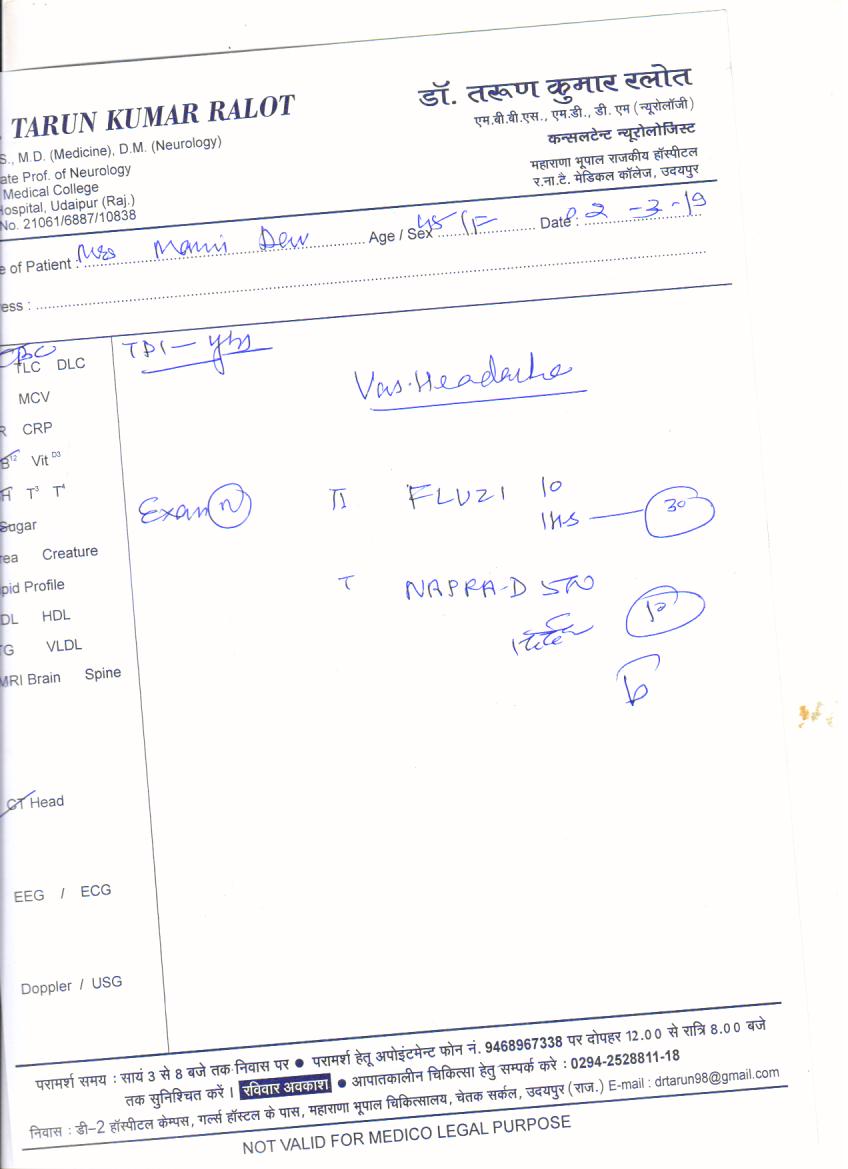 . TARUN KUMAR RALOT
S., M.D. (Medicine), D.M. (Neurology)
ate Prof. of Neurology
Medical College
Hospital, Udaipur (Raj.)
No. 21061/6887/10838
डॉ. तरूण कुमार रलोत
एम.बी.बी.एस., एम.डी., डी. एम (न्यूरोलॉजी)
कन्सलटेन्ट न्यूरोलोजिस्ट
महाराणा भूपाल राजकीय हॉस्पीटल
र.ना.टै. मेडिकल कॉलेज, उदयपुर
e of Patient : Mrs Age / Sex 45 / F Date : 2 -3 -19
ess :
TLC DLC
MCV
R CRP
B12 Vit D3
H T3 T4
Sugar
rea Creature
pid Profile
DL HDL
TG VLDL
MRI Brain Spine
CT Head
EEG / ECG
Doppler / USG
Vas. Headache
Exam N
FLUZI 10
1hs — 30
T NAPRA-D 500
10
परामर्श समय : सायं 3 से 8 बजे तक निवास पर ● परामर्श हेतू अपोइंटमेन्ट फोन नं. 9468967338 पर दोपहर 12.00 से रात्रि 8.00 बजे
तक सुनिश्चित करें । रविवार अवकाश ● आपातकालीन चिकित्सा हेतु सम्पर्क करे : 0294-2528811-18
निवास : डी-2 हॉस्पीटल केम्पस, गर्ल्स हॉस्टल के पास, महाराणा भूपाल चिकित्सालय, चेतक सर्कल, उदयपुर (राज.) E-mail : drtarun98@gmail.com
NOT VALID FOR MEDICO LEGAL PURPOSE